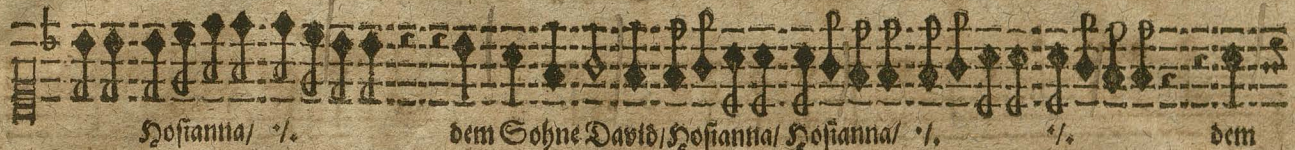 Hosianna/ ·/. dem Sohne David/ Hosianna/ Hosianna/ ·/. ·/. dem